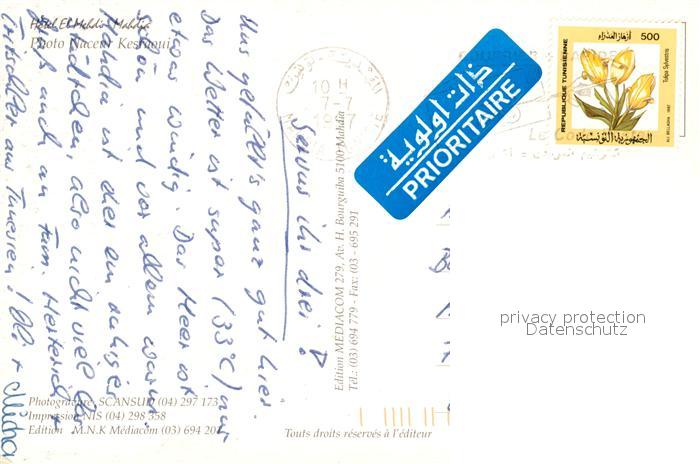 Hotel El Mehdi - Mahdia
Photo Naceur Keskaoui
10 H
7-7
1997
ذات أولوية
PRIORITAIRE
500
أزهار العذراء
REPUBLIQUE TUNISIENNE
Tulipa Sylvestris
الجمهورية التونسية
Servus ihr drei!
Uns gefällt's ganz gut hier.
Das Wetter ist super (33°C), nur
etwas windig. Das Meer ist
schön und vor allem warm.
Mahdia ist eher ein ruhiges
Städtchen, also nicht viel los.
auch an Fam.
aus Tunesien! + Micha
Edition MÉDIACOM 279, Av. H. Bourguiba 5100 Mahdia
Tél.: (03) 694 779 - Fax: (03 - 695 291
privacy protection
Datenschutz
Photogravure, SCANSUD (04) 297 173
Impression NIS (04) 298 358
Edition M.N.K Médiacom (03) 694 20
Touts droits réservés à l'éditeur